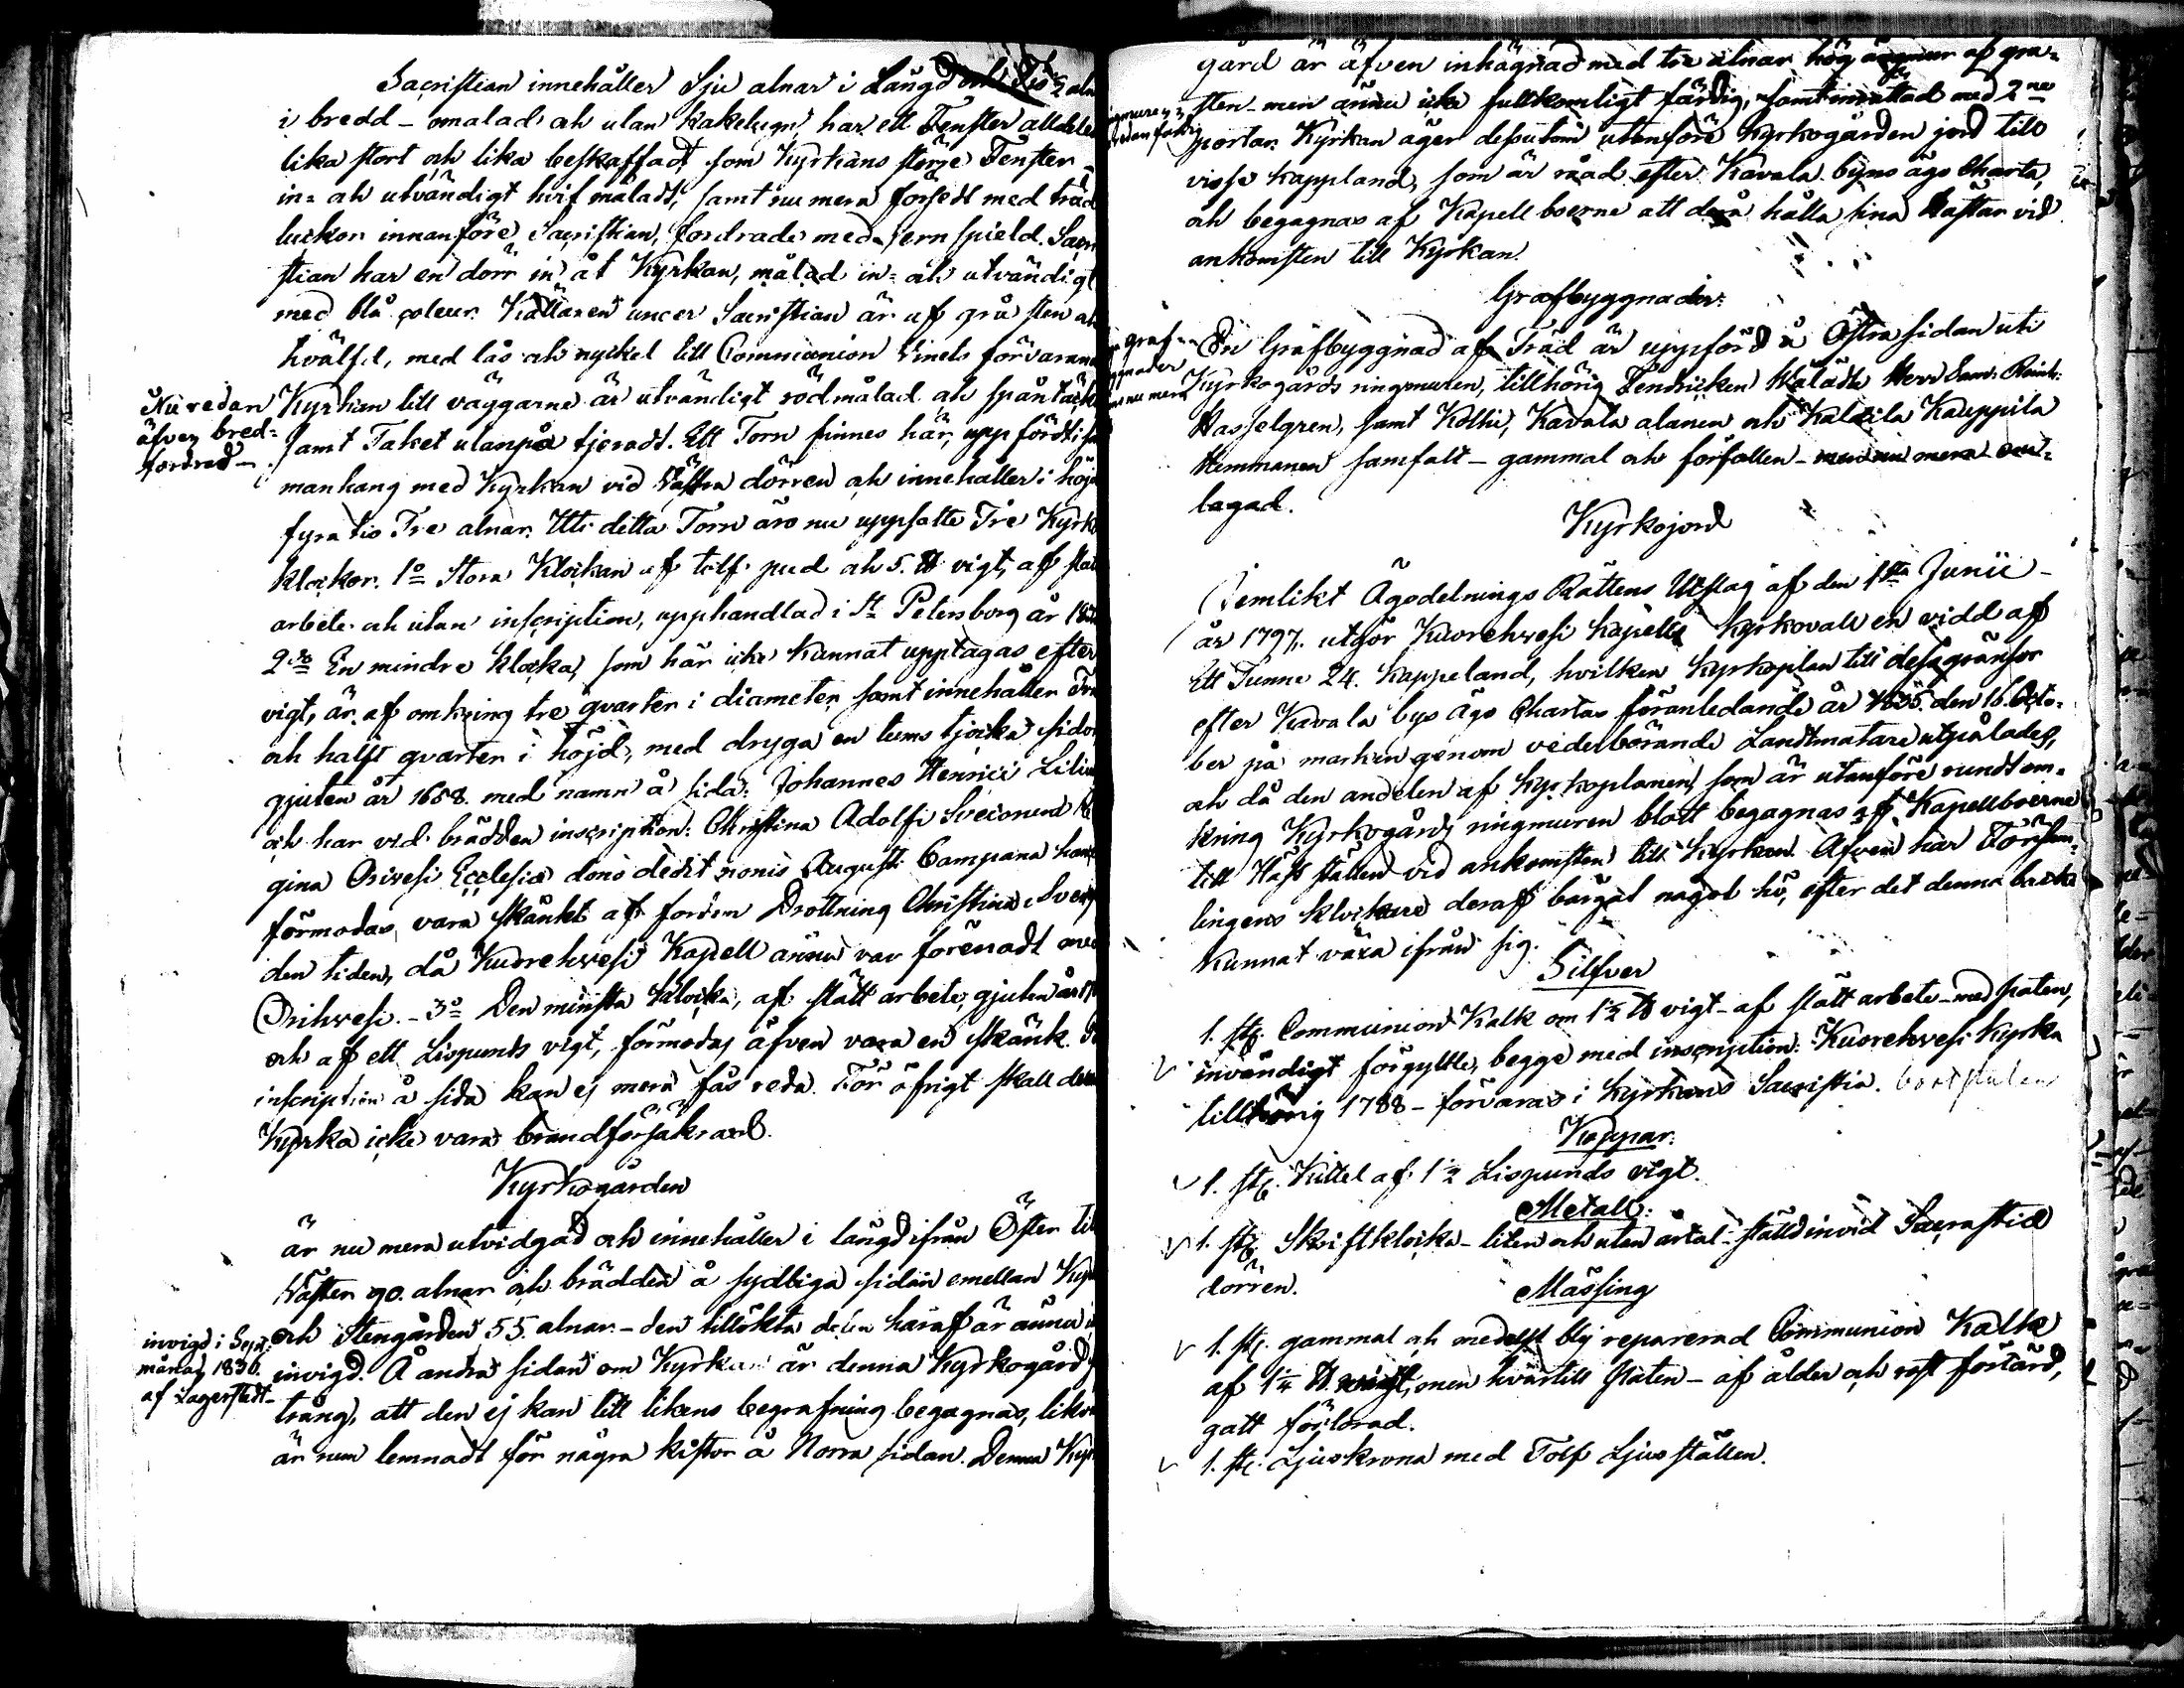 Sacristian innehåller Sju alnar i Längd och Sex ½ aln
i bredd – omalad och utan kakelugn, har ett Fenster alldeles
lika stort och lika beskaffadt som Kyrkans större Fenster –
in- och utvändigt hvit måladt, samt nu mera försedt med träd
luckor innanföre Sacristian, fordrade med jern spield. Sacri
stian har en dörr in åt Kyrkan, målad in- och utvändigt
med blå coleur. Källaren under Sacristian är af grå sten och
hvälfd, med lås och nyckel till Communion Vinets förvarand
Nu redan
äfven bred-
fordrad –
Kyrkan till väggarne är utvändigt rödmålad och spåntäckt
samt Taket utanpå tjeradt. Ett Torn finnes här, uppfördt i sam
manhang med Kyrkan vid Västra dörren och innehåller i höjd
fyratio Tre alnar. Uti detta Torn äro nu uppsatte Tre Kyrk
klockor. 1o Stora Klockan af tolf pud och 5. ℔ vigt, af slätt
arbete och utan inscription, upphandlad i St Petersborg år 18
2do En mindre klocka, som här icke kunnat upptagas efter
vigt, är af omkring tre qvarter i diameter, samt innehåller Tre
och halft qvarter i höjd, med dryga en tums tjocka sidor
gjuten år 1658. med namn å sida: Johannes Henrici Lili
och har vid brädden inscription: Christina Adolfi Sveconum Re
gina Orivesi Ecclesiæ dono dedit nonis Augusti Campana han
förmodas vara skänkt af fordom Drottning Christina i Sverig
den tiden, då Kuorehvesi Kapell ännu var förenadt med
Orihvesi. – 3o Den minsta klocka, af slätt arbete, gjuten år 17
och af ett Lispunds vigt, förmodas äfven vara en skänk.
inscription å sida kan ej mera fås reda. För öfrigt skall denna
Kyrka icke vara brandförsäkrad.
Kyrkogården
är nu mera utvidgad och innehåller i längd ifrån Öster till
Väster 90. alnar och brädden å sydliga sidan emellan Kyrk
invigd i Sept:
månad 1836.
af Lagerstedt –
och Stengården 55. alnar – den tillökta delen häraf är ännu
invigd. Å andra sidan om Kyrkan är denna Kyrkogård
trång, att den ej kan till likens begrafning begagnas, likv
är rum lemnadt för några kistor å Norra sidan. Denna Kyrk
gård är äfven inhägnad med tre alnar hög ringmur af grå-
sten – men ännu icke fullkomligt färdig, samt inrättad med 2ne
ngmuren är
redan färdig
portar. Kyrkan äger dessutom utanföre Kyrkogården jord till
visse kappland, som är råad efter Kavala byns ägo Charta,
och begagnas af Kapellboerne att derå hålla sina Hästar vid
ankomsten till Kyrkan.
Grafbyggnader.
graf-
ggnader
nu mera
En Grafbyggnad af Träd är uppförd å Östra sidan uti
Kyrkogårds ringmuren, tillhörig Fendricken Wälädle Herr Sam: Reinh:
Hasselgren, samt Kolhi, Kavala alanen och Kalaila Kauppila
Hemmanen samfält – gammal och förfallen – men nu mera om-
lagad.
Kyrkojord
Jemlikt Ägodelnings Rättens Utslag af den 1sta Junii –
år 1797. utgör Kuorehvesi Kapells Kyrkovall en vidd af
Ett Tunne 24. Kappeland, hvilken Kyrkoplan till dess gränsor
efter Kavala bys ägo Chartas föranledande år 1835. den 16. Octo-
ber på marken genom vederbörande Landtmätare utpålades,
och då den andelen af Kyrkoplanen, som är utanföre rundt om-
kring Kyrkogårds ringmuren blott begagnas af Kapellboerne
till Häst ställen vid ankomsten till Kyrkan. Äfven har Försam-
lingens klockare deraf bärgat något hö, efter det denna backe
kunnat växa ifrån sig.
Silfver
1. st. Communion Kalk om 1½ ℔ vigt – af slätt arbete – med paten,
invändigt förgyllte, begge med inscription: Kuorehvesi Kyrka
tillhörig 1788 – förvaras i Kyrkans Sacristia. bortstulen
Koppar.
1. st. Kittel af 1½ Lispunds vigt.
Metall.
1. st. Skriftklocka – liten och utan årtal – ställd invid Sacrastie
dörren.
Mässing
1. st. gammal och medelst bly reparerad Communion Kalk
af 1¼ ℔. vigt, men hvartill Paten – af ålder och rost förtärd,
gått förlorad.
1. st. Ljuskrona med Tolf Ljus ställen.